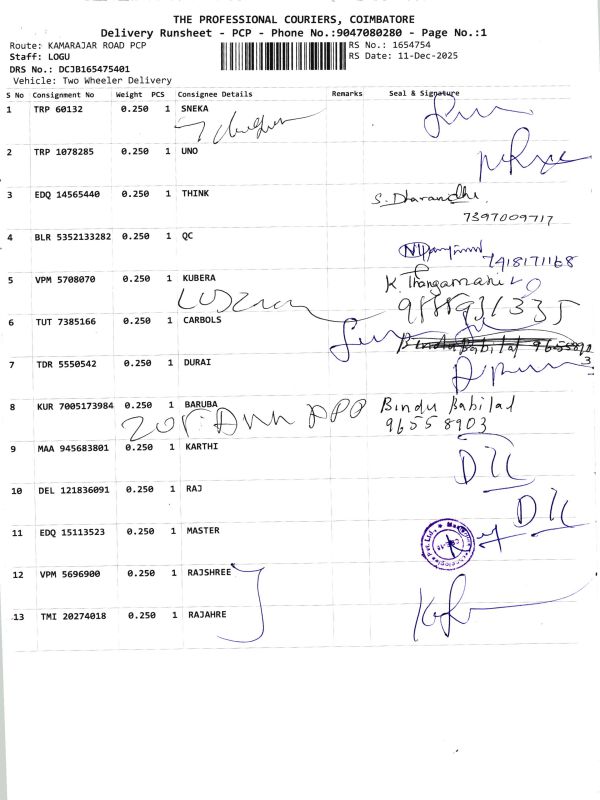 THE PROFESSIONAL COURIERS, COIMBATORE
Delivery Runsheet - PCP - Phone No.:9047080280 - Page No.:1
Route: KAMARAJAR ROAD PCP RS No.: 1654754
Staff: LOGU RS Date: 11-Dec-2025
DRS No.: DCJB165475401
Vehicle: Two Wheeler Delivery
S No Consignment No Weight PCS Consignee Details Remarks Seal & Signature
1 TRP 60132 0.250 1 SNEKA
2 TRP 1078285 0.250 1 UNO
3 EDQ 14565440 0.250 1 THINK
7397009717
4 BLR 5352133282 0.250 1 QC
7418171168
5 VPM 5708070 0.250 1 KUBERA
K. Thangamani
6 TUT 7385166 0.250 1 CARBOLS
Bindu Babilal
7 TDR 5550542 0.250 1 DURAI
8 KUR 7005173984 0.250 1 BARUBA Bindu Babilal
96558903
9 MAA 945683801 0.250 1 KARTHI
10 DEL 121836091 0.250 1 RAJ
11 EDQ 15113523 0.250 1 MASTER
12 VPM 5696900 0.250 1 RAJSHREE
13 TMI 20274018 0.250 1 RAJAHRE